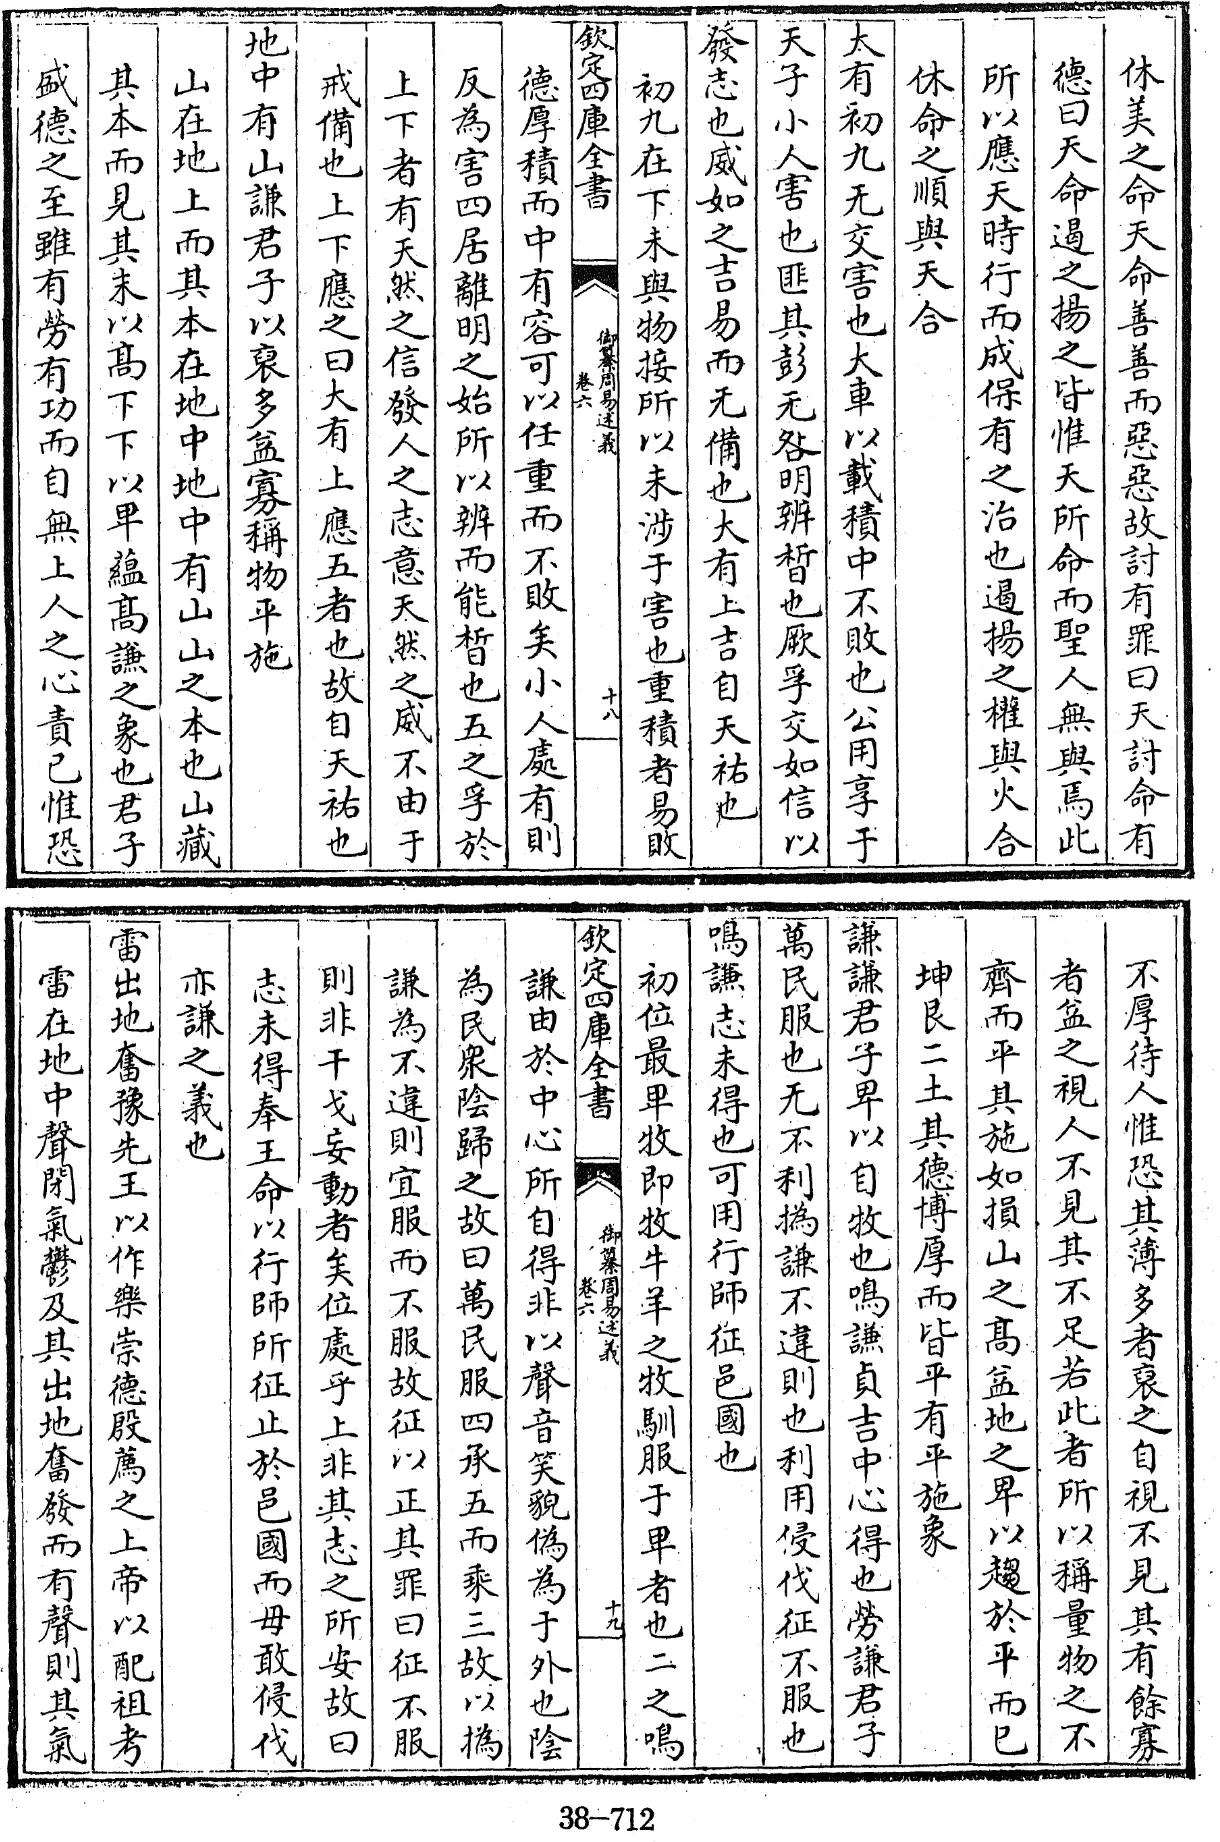 休美之命天命善善而惡惡故討有罪曰天討命有
德曰天命遏之揚之皆惟天所命而聖人無與焉此
所以應天時行而成保有之治也遏揚之權與火合
休命之順與天合
大有初九无交害也大車以載積中不敗也公用享于
天子小人害也匪其彭无咎明辨晳也厥孚交如信以
發志也威如之吉易而无備也大有上吉自天祐也
初九在下未與物接所以未涉于害也重積者易敗
欽定四庫全書
御纂周易述義
卷六
十八
德厚積而中有容可以任重而不敗矣小人處有則
反為害四居離明之始所以辨而能晳也五之孚於
上下者有天然之信發人之志意天然之威不由于
戒備也上下應之曰大有上應五者也故自天祐也
地中有山謙君子以裒多益寡稱物平施
山在地上而其本在地中地中有山山之本也山藏
其本而見其末以高下下以卑蘊高謙之象也君子
盛德之至雖有勞有功而自無上人之心責己惟恐
不厚待人惟恐其薄多者裒之自視不見其有餘寡
者益之視人不見其不足若此者所以稱量物之不
齊而平其施如損山之高益地之卑以趨於平而已
坤艮二土其德博厚而皆平有平施象
謙謙君子卑以自牧也鳴謙貞吉中心得也勞謙君子
萬民服也无不利撝謙不違則也利用侵伐征不服也
鳴謙志未得也可用行師征邑國也
初位最卑牧即牧牛羊之牧馴服于卑者也二之鳴
欽定四庫全書
御纂周易述義
卷六
十九
謙由於中心所自得非以聲音笑貌偽為于外也陰
為民衆陰歸之故曰萬民服四承五而乘三故以撝
謙為不違則宜服而不服故征以正其罪曰征不服
則非干戈妄動者矣位處乎上非其志之所安故曰
志未得奉王命以行師所征止於邑國而毋敢侵伐
亦謙之義也
雷出地奮豫先王以作樂崇德殷薦之上帝以配祖考
雷在地中聲閉氣鬱及其出地奮發而有聲則其氣
38-712